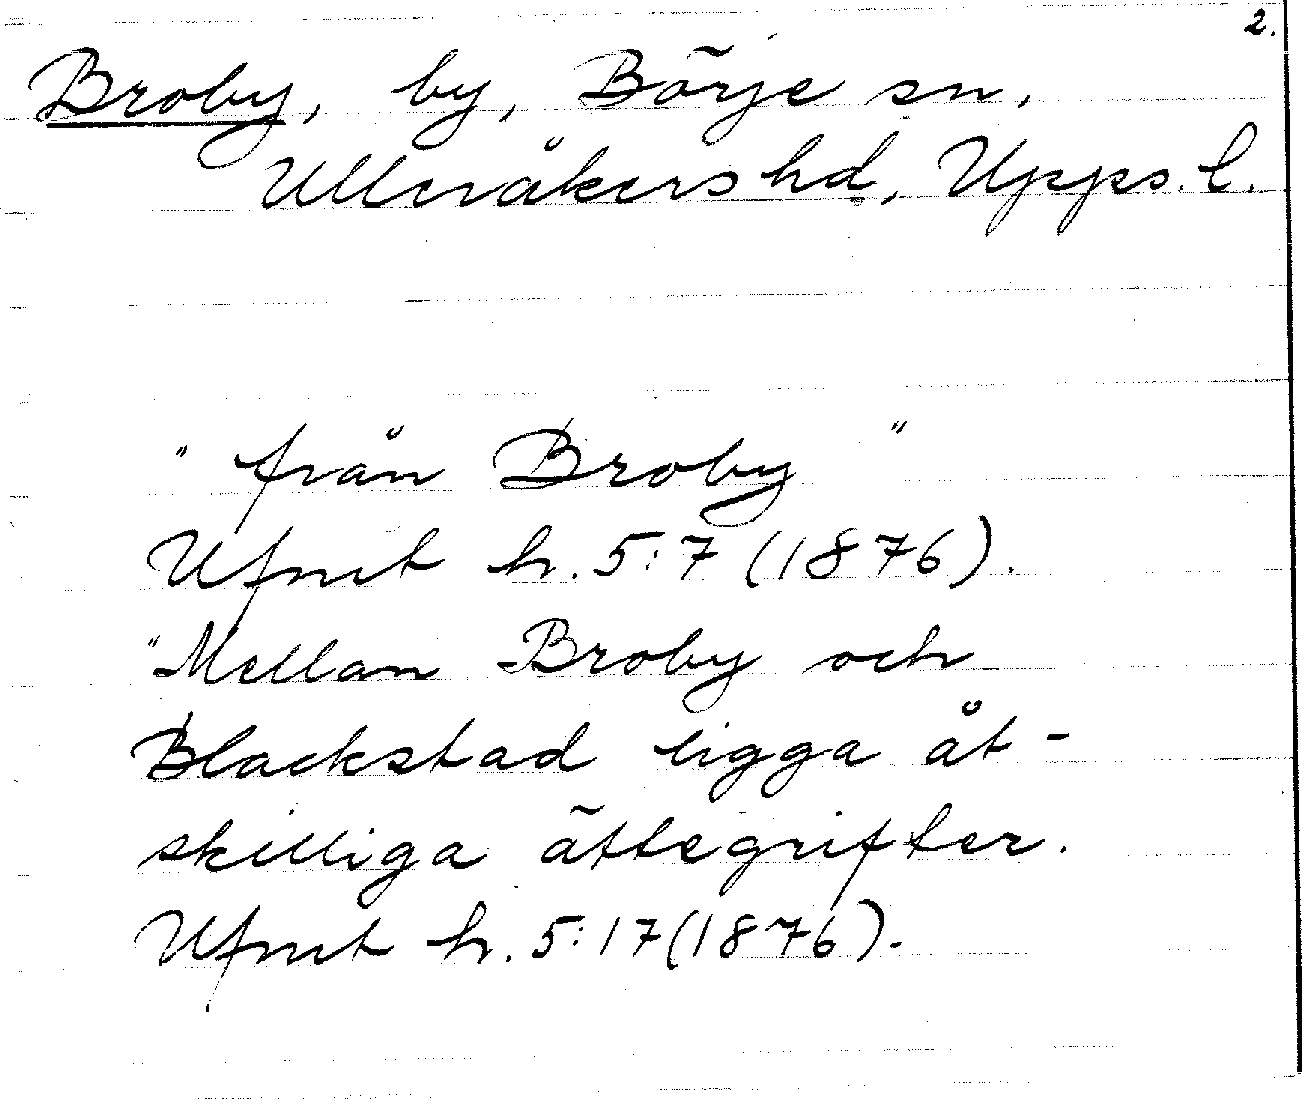 2.
Broby, by, Börje sn,
Ulleråkers hd, Upps. l.
"från Broby"
Ufmt h. 5:7 (1876).
"Mellan Broby och
Blackstad ligga åt-
skilliga ättegrifter.
Ufmt h. 5:17 (1876).